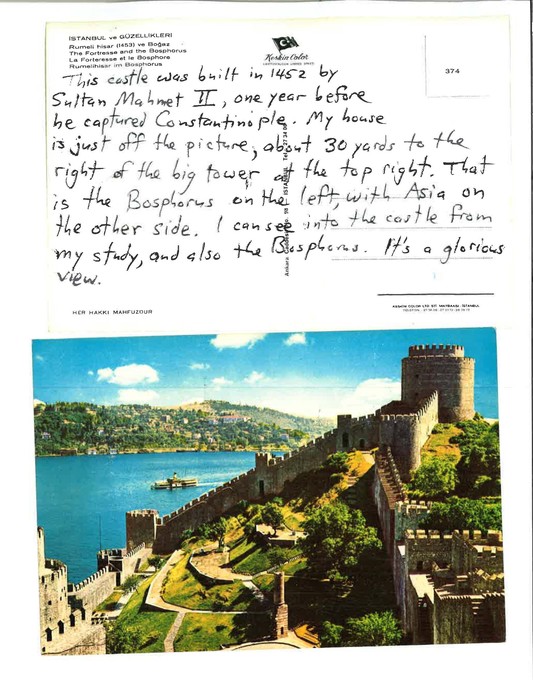 İSTANBUL ve GÜZELLİKLERİ
Rumeli hisar (1453) ve Boğaz
The Fortresse and the Bosphorus
La Forteresse et le Bosphore
Rumelihisar im Bosphorus
Keskin Color
374
This castle was built in 1452 by
Sultan Mahmet II, one year before
he captured Constantinople. My house
is just off the picture, about 30 yards to the
right of the big tower at the top right. That
is the Bosphorus on the left, with Asia on
the other side. I can see into the castle from
my study, and also the Bosphorus. It's a glorious
view.
Ankara
HER HAKKI MAHFUZDUR
KESKİN COLOR LTD ŞTİ. MATBAASI - İSTANBUL